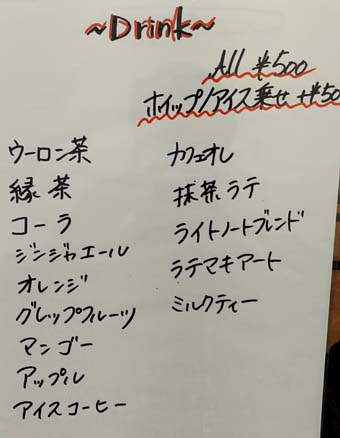 ~Drink~
All ¥500
ホイップ/アイス乗せ +¥50
ウーロン茶
緑茶
コーラ
ジンジャエール
オレンジ
グレップフルーツ
マンゴー
アップル
アイスコーヒー
カフェオレ
抹茶ラテ
ライトノートブレンド
ラテマキアート
ミルクティー